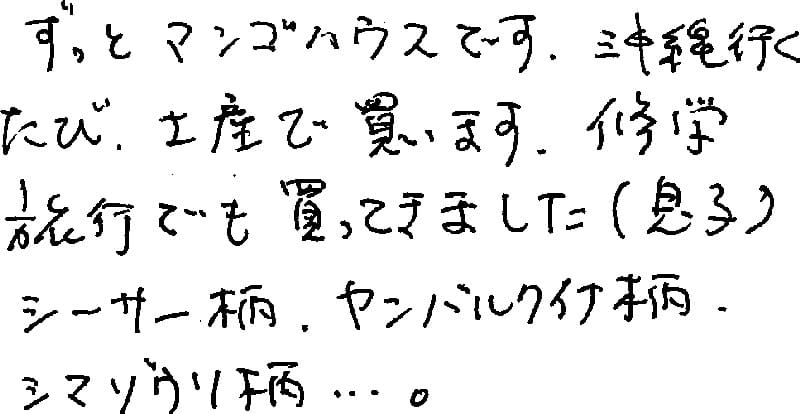 ずっとマンゴハウスです.沖縄行く
たび.土産で買います.修学
旅行でも買ってきました(息子)
シーサー柄.ヤンバルクイナ柄.
シマゾウリ柄…。